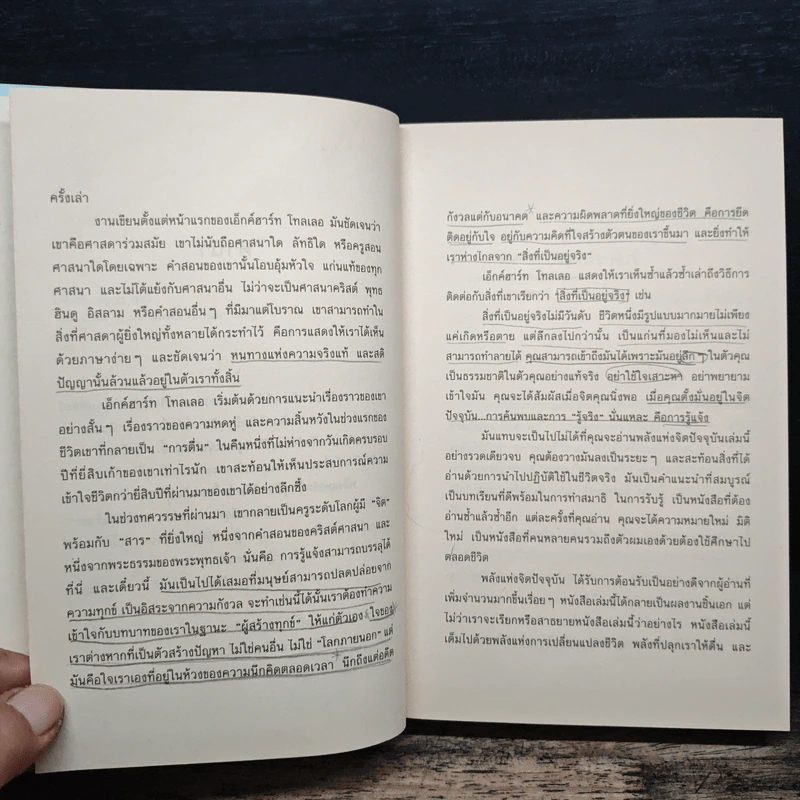 ครั้งเล่า
งานเขียนตั้งแต่หน้าแรกของเอ็กค์ฮาร์ท โทลเลอ มันชัดเจนว่า
เขาคือศาสดาร่วมสมัย เขาไม่นับถือศาสนาใด ลัทธิใด หรือครูสอน
ศาสนาใดโดยเฉพาะ คำสอนของเขานั้นโอบอุ้มหัวใจ แก่นแท้ของทุก
ศาสนา และไม่ได้แย้งกับศาสนาอื่น ไม่ว่าจะเป็นศาสนาคริสต์ พุทธ
ฮินดู อิสลาม หรือคำสอนอื่นๆ ที่มีมาแต่โบราณ เขาสามารถทำใน
สิ่งที่ศาสดาผู้ยิ่งใหญ่ทั้งหลายได้กระทำไว้ คือการแสดงให้เราได้เห็น
ด้วยภาษาง่ายๆ และชัดเจนว่า หนทางแห่งความจริงแท้ และสติ
ปัญญานั้นล้วนแล้วอยู่ในตัวเราทั้งสิ้น
เอ็กค์ฮาร์ท โทลเลอ เริ่มต้นด้วยการแนะนำเรื่องราวของเขา
อย่างสั้นๆ เรื่องราวของความหดหู่ และความสิ้นหวังในช่วงแรกของ
ชีวิตเขาที่กลายเป็น "การตื่น" ในคืนหนึ่งที่ไม่ห่างจากวันเกิดครบรอบ
ปีที่ยี่สิบเก้าของเขาเท่าไรนัก เขาสะท้อนให้เห็นประสบการณ์ความ
เข้าใจชีวิตกว่ายี่สิบปีที่ผ่านมาของเขาได้อย่างลึกซึ้ง
ในช่วงทศวรรษที่ผ่านมา เขากลายเป็นครูระดับโลกผู้มี "จิต"
พร้อมกับ "สาร" ที่ยิ่งใหญ่ หนึ่งจากคำสอนของคริสต์ศาสนา และ
หนึ่งจากพระธรรมของพระพุทธเจ้า นั่นคือ การรู้แจ้งสามารถบรรลุได้
ที่นี่ และเดี๋ยวนี้ มันเป็นไปได้เสมอที่มนุษย์สามารถปลดปล่อยจาก
ความทุกข์ เป็นอิสระจากความกังวล จะทำเช่นนี้ได้นั้นเราต้องทำความ
เข้าใจกับบทบาทของเราในฐานะ "ผู้สร้างทุกข์" ให้แก่ตัวเอง ใจของ
เราต่างหากที่เป็นตัวสร้างปัญหา ไม่ใช่คนอื่น ไม่ใช่ "โลกภายนอก" แต่
มันคือใจเราเองที่อยู่ในห้วงของความนึกคิดตลอดเวลา นึกถึงแต่อดีต
กังวลแต่กับอนาคต และความผิดพลาดที่ยิ่งใหญ่ของชีวิต คือการยึด
ติดอยู่กับใจ อยู่กับความคิดที่ใจสร้างตัวตนของเราขึ้นมา และยิ่งทำให้
เราห่างไกลจาก "สิ่งที่เป็นอยู่จริง"
เอ็กค์ฮาร์ท โทลเลอ แสดงให้เราเห็นซ้ำแล้วซ้ำเล่าถึงวิธีการ
ติดต่อกับสิ่งที่เขาเรียกว่า "สิ่งที่เป็นอยู่จริง" เช่น
สิ่งที่เป็นอยู่จริงไม่มีวันดับ ชีวิตหนึ่งมีรูปแบบมากมายไม่เพียง
แค่เกิดหรือตาย แต่ลึกลงไปกว่านั้น เป็นแก่นที่มองไม่เห็นและไม่
สามารถทำลายได้ คุณสามารถเข้าถึงมันได้เพราะมันอยู่ลึกๆ ในตัวคุณ
เป็นธรรมชาติในตัวคุณอย่างแท้จริง อย่าใช้ใจเสาะหา อย่าพยายาม
เข้าใจมัน คุณจะได้สัมผัสเมื่อจิตคุณนิ่งพอ เมื่อคุณตั้งมั่นอยู่ในจิต
ปัจจุบัน...การค้นพบและการ "รู้จริง" นั่นแหละ คือการรู้แจ้ง
มันแทบจะเป็นไปไม่ได้ที่คุณจะอ่านพลังแห่งจิตปัจจุบันเล่มนี้
อย่างรวดเดียวจบ คุณต้องวางมันลงเป็นระยะๆ และสะท้อนสิ่งที่ได้
อ่านด้วยการนำไปปฏิบัติใช้ในชีวิตจริง มันเป็นคำแนะนำที่สมบูรณ์
เป็นบทเรียนที่ดีพร้อมในการทำสมาธิ ในการรับรู้ เป็นหนังสือที่ต้อง
อ่านซ้ำแล้วซ้ำอีก แต่ละครั้งที่คุณอ่าน คุณจะได้ความหมายใหม่ มิติ
ใหม่ เป็นหนังสือที่คนหลายคนรวมถึงตัวผมเองด้วยต้องใช้ศึกษาไป
ตลอดชีวิต
พลังแห่งจิตปัจจุบัน ได้รับการต้อนรับเป็นอย่างดีจากผู้อ่านที่
เพิ่มจำนวนมากขึ้นเรื่อยๆ หนังสือเล่มนี้ได้กลายเป็นผลงานชิ้นเอก แต่
ไม่ว่าเราจะเรียกหรือสาธยายหนังสือเล่มนี้ว่าอย่างไร หนังสือเล่มนี้
เต็มไปด้วยพลังแห่งการเปลี่ยนแปลงชีวิต พลังที่ปลุกเราให้ตื่น และ